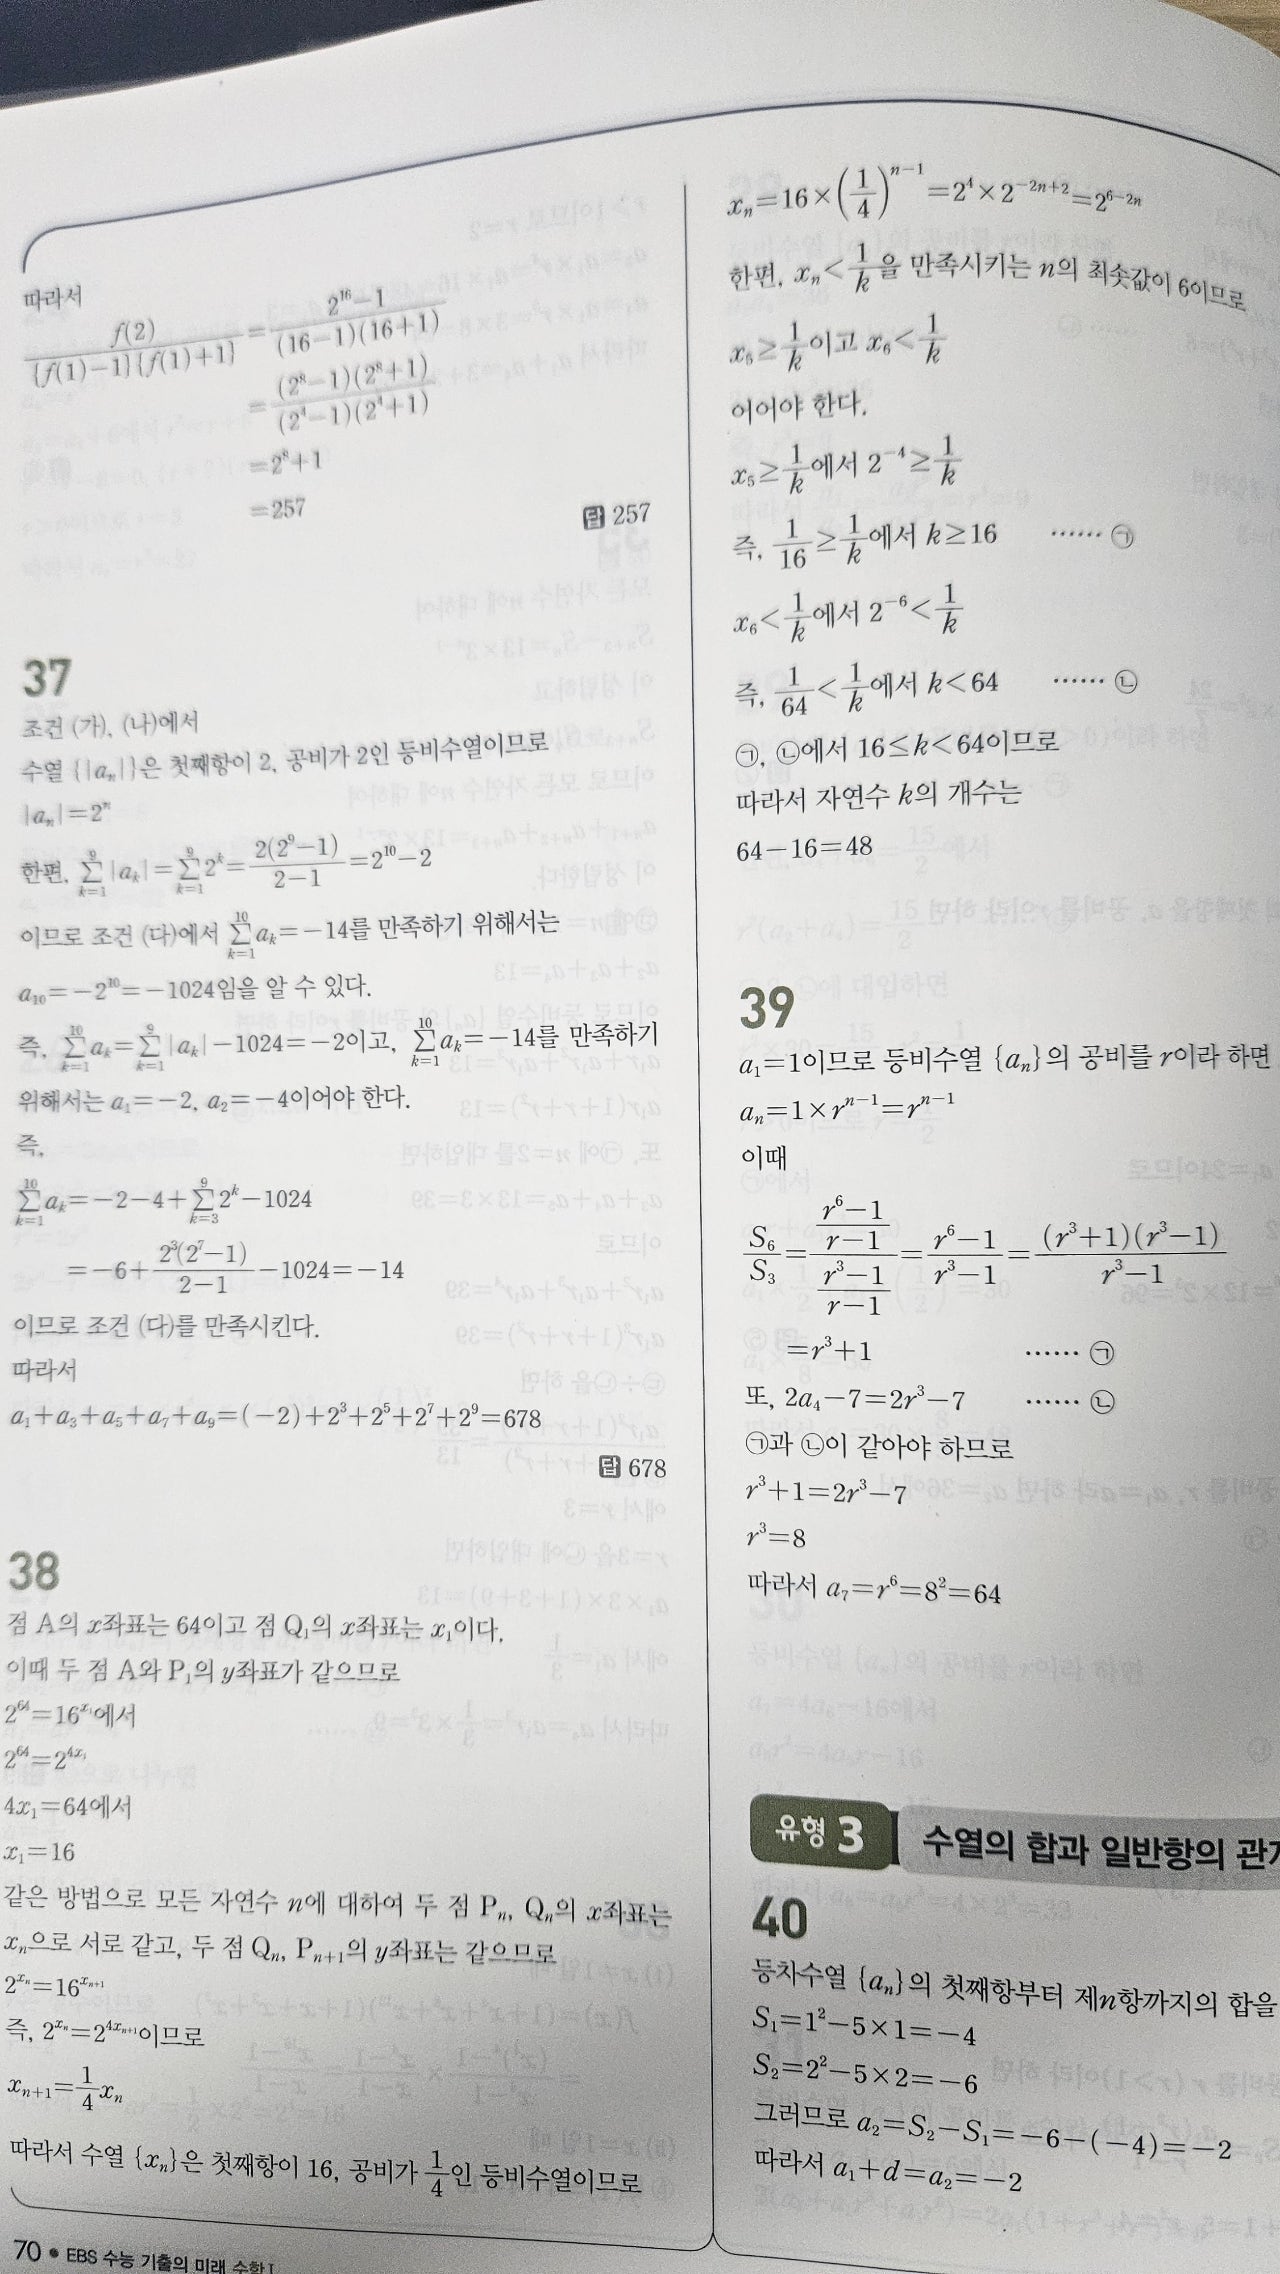 따라서
f(2)/{f(1)−1}{f(1)+1} = (2¹⁶−1)/((16−1)(16+1))
= ((2⁸−1)(2⁸+1))/((2⁴−1)(2⁴+1))
=2⁸+1
=257
답 257
37
조건 (가), (나)에서
수열 {|aₙ|}은 첫째항이 2, 공비가 2인 등비수열이므로
|aₙ|=2ⁿ
한편, ∑_{k=1}^{9}|a_k|=∑_{k=1}^{9}2^k=2(2⁹−1)/(2−1)=2¹⁰−2
이므로 조건 (다)에서 ∑_{k=1}^{10}a_k=−14를 만족하기 위해서는
a₁₀=−2¹⁰=−1024임을 알 수 있다.
즉, ∑_{k=1}^{10}a_k=∑_{k=1}^{9}|a_k|−1024=−2이고, ∑_{k=1}^{10}a_k=−14를 만족하기
위해서는 a₁=−2, a₂=−4이어야 한다.
즉,
∑_{k=1}^{10}a_k=−2−4+∑_{k=3}^{9}2^k−1024
=−6+2³(2⁷−1)/(2−1)−1024=−14
이므로 조건 (다)를 만족시킨다.
따라서
a₁+a₃+a₅+a₇+a₉=(−2)+2³+2⁵+2⁷+2⁹=678
답 678
38
점 A의 x좌표는 64이고 점 Q₁의 x좌표는 x₁이다.
이때 두 점 A와 P₁의 y좌표가 같으므로
2⁶⁴=16^{x₁}에서
2⁶⁴=2^{4x₁}
4x₁=64에서
x₁=16
같은 방법으로 모든 자연수 n에 대하여 두 점 Pₙ, Qₙ의 x좌표는
xₙ으로 서로 같고, 두 점 Qₙ, Pₙ₊₁의 y좌표는 같으므로
2^{xₙ}=16^{xₙ₊₁}
즉, 2^{xₙ}=2^{4xₙ₊₁}이므로
xₙ₊₁=1/4 xₙ
따라서 수열 {xₙ}은 첫째항이 16, 공비가 1/4인 등비수열이므로
70 • EBS 수능 기출의 미래 수학 I
xₙ=16×(1/4)^{n−1}=2⁴×2^{−2n+2}=2^{6−2n}
한편, xₙ<1/k을 만족시키는 n의 최솟값이 6이므로
x₅≥1/k이고 x₆<1/k
이어야 한다.
x₅≥1/k에서 2⁻⁴≥1/k
즉, 1/16≥1/k에서 k≥16 …… ㉠
x₆<1/k에서 2⁻⁶<1/k
즉, 1/64<1/k에서 k<64 …… ㉡
㉠, ㉡에서 16≤k<64이므로
따라서 자연수 k의 개수는
64−16=48
39
a₁=1이므로 등비수열 {aₙ}의 공비를 r이라 하면
aₙ=1×r^{n−1}=r^{n−1}
이때
S₆/S₃=((r⁶−1)/(r−1))/((r³−1)/(r−1))=(r⁶−1)/(r³−1)=((r³+1)(r³−1))/(r³−1)
=r³+1 …… ㉠
또, 2a₄−7=2r³−7 …… ㉡
㉠과 ㉡이 같아야 하므로
r³+1=2r³−7
r³=8
따라서 a₇=r⁶=8²=64
유형 3 수열의 합과 일반항의
40
등차수열 {aₙ}의 첫째항부터 제n항까지의 합을
S₁=1²−5×1=−4
S₂=2²−5×2=−6
그러므로 a₂=S₂−S₁=−6−(−4)=−2
따라서 a₁+d=a₂=−2